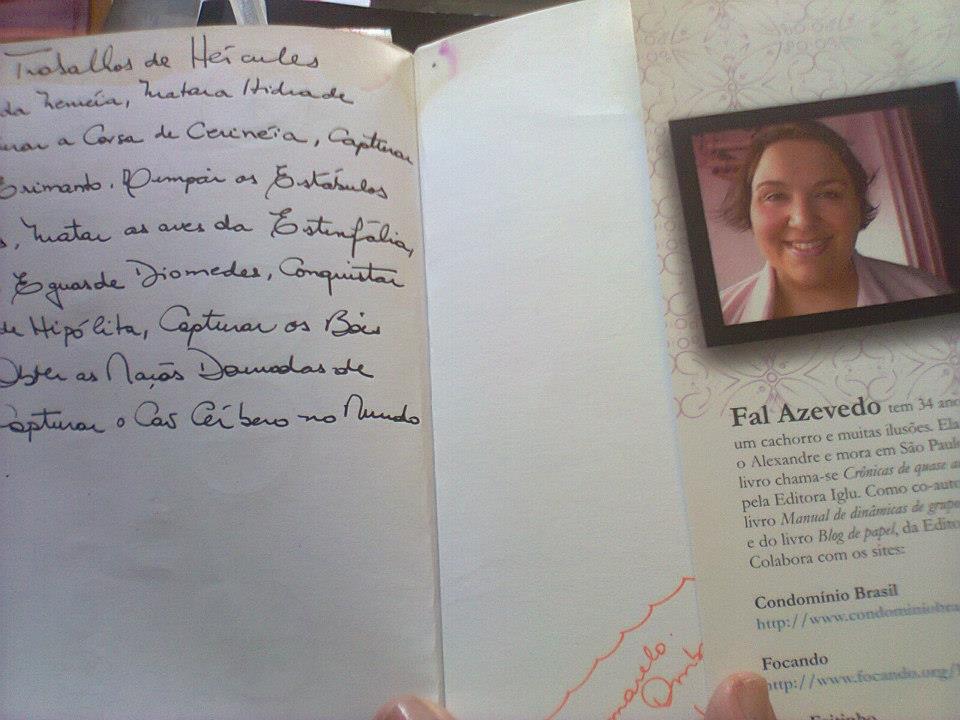 Trabalhos de Hércules
da Nemeia, Matar a Hidra de
a Corsa de Cerinéia, Capturar
Erimanto. Limpar os Estábulos
Matar as aves da Estinfália,
Eguas de Diomedes, Conquistar
de Hipólita, Capturar os Bois
Obter as Maçãs Douradas de
Capturar o Cão Cérbero no Mundo
Fal Azevedo tem 34 ano
um cachorro e muitas ilusões. Ela
o Alexandre e mora em São Paul
livro chama-se Crônicas de quase a
pela Editora Iglu. Como co-auto
livro Manual de dinâmicas de grupo
e do livro Blog de papel, da Edito
Colabora com os sites:
Condomínio Brasil
http://www.condominiobra
Focando
http://www.focando.org/
marelo.